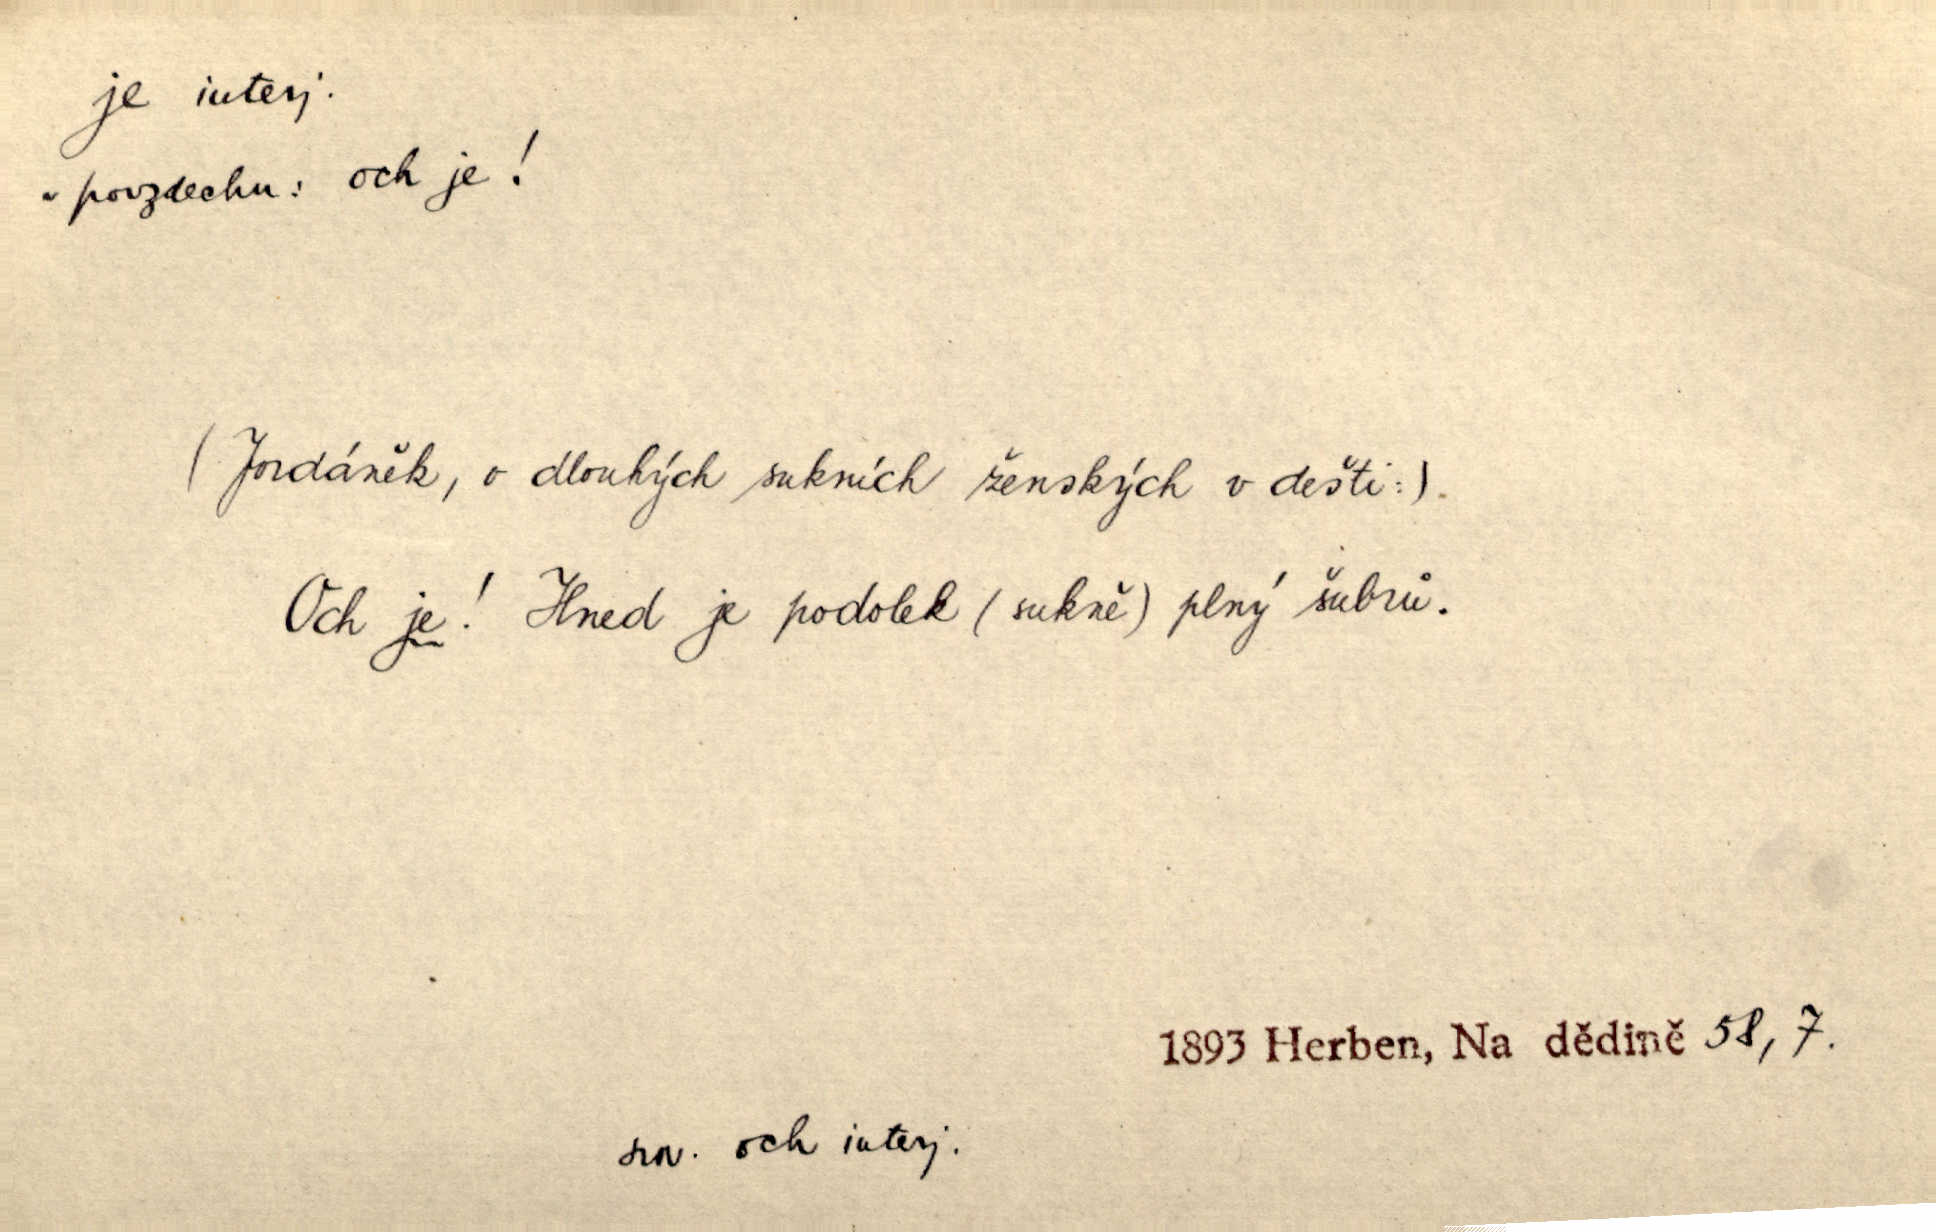 je interj.
v povzdechu: och je!
(Jordáněk, o dlouhých sukních ženských v dešti:).
Och je! Hned je podolek (sukně) plný šubrů.
1893 Herben, Na dědině 58, 7.
srov. och interj.